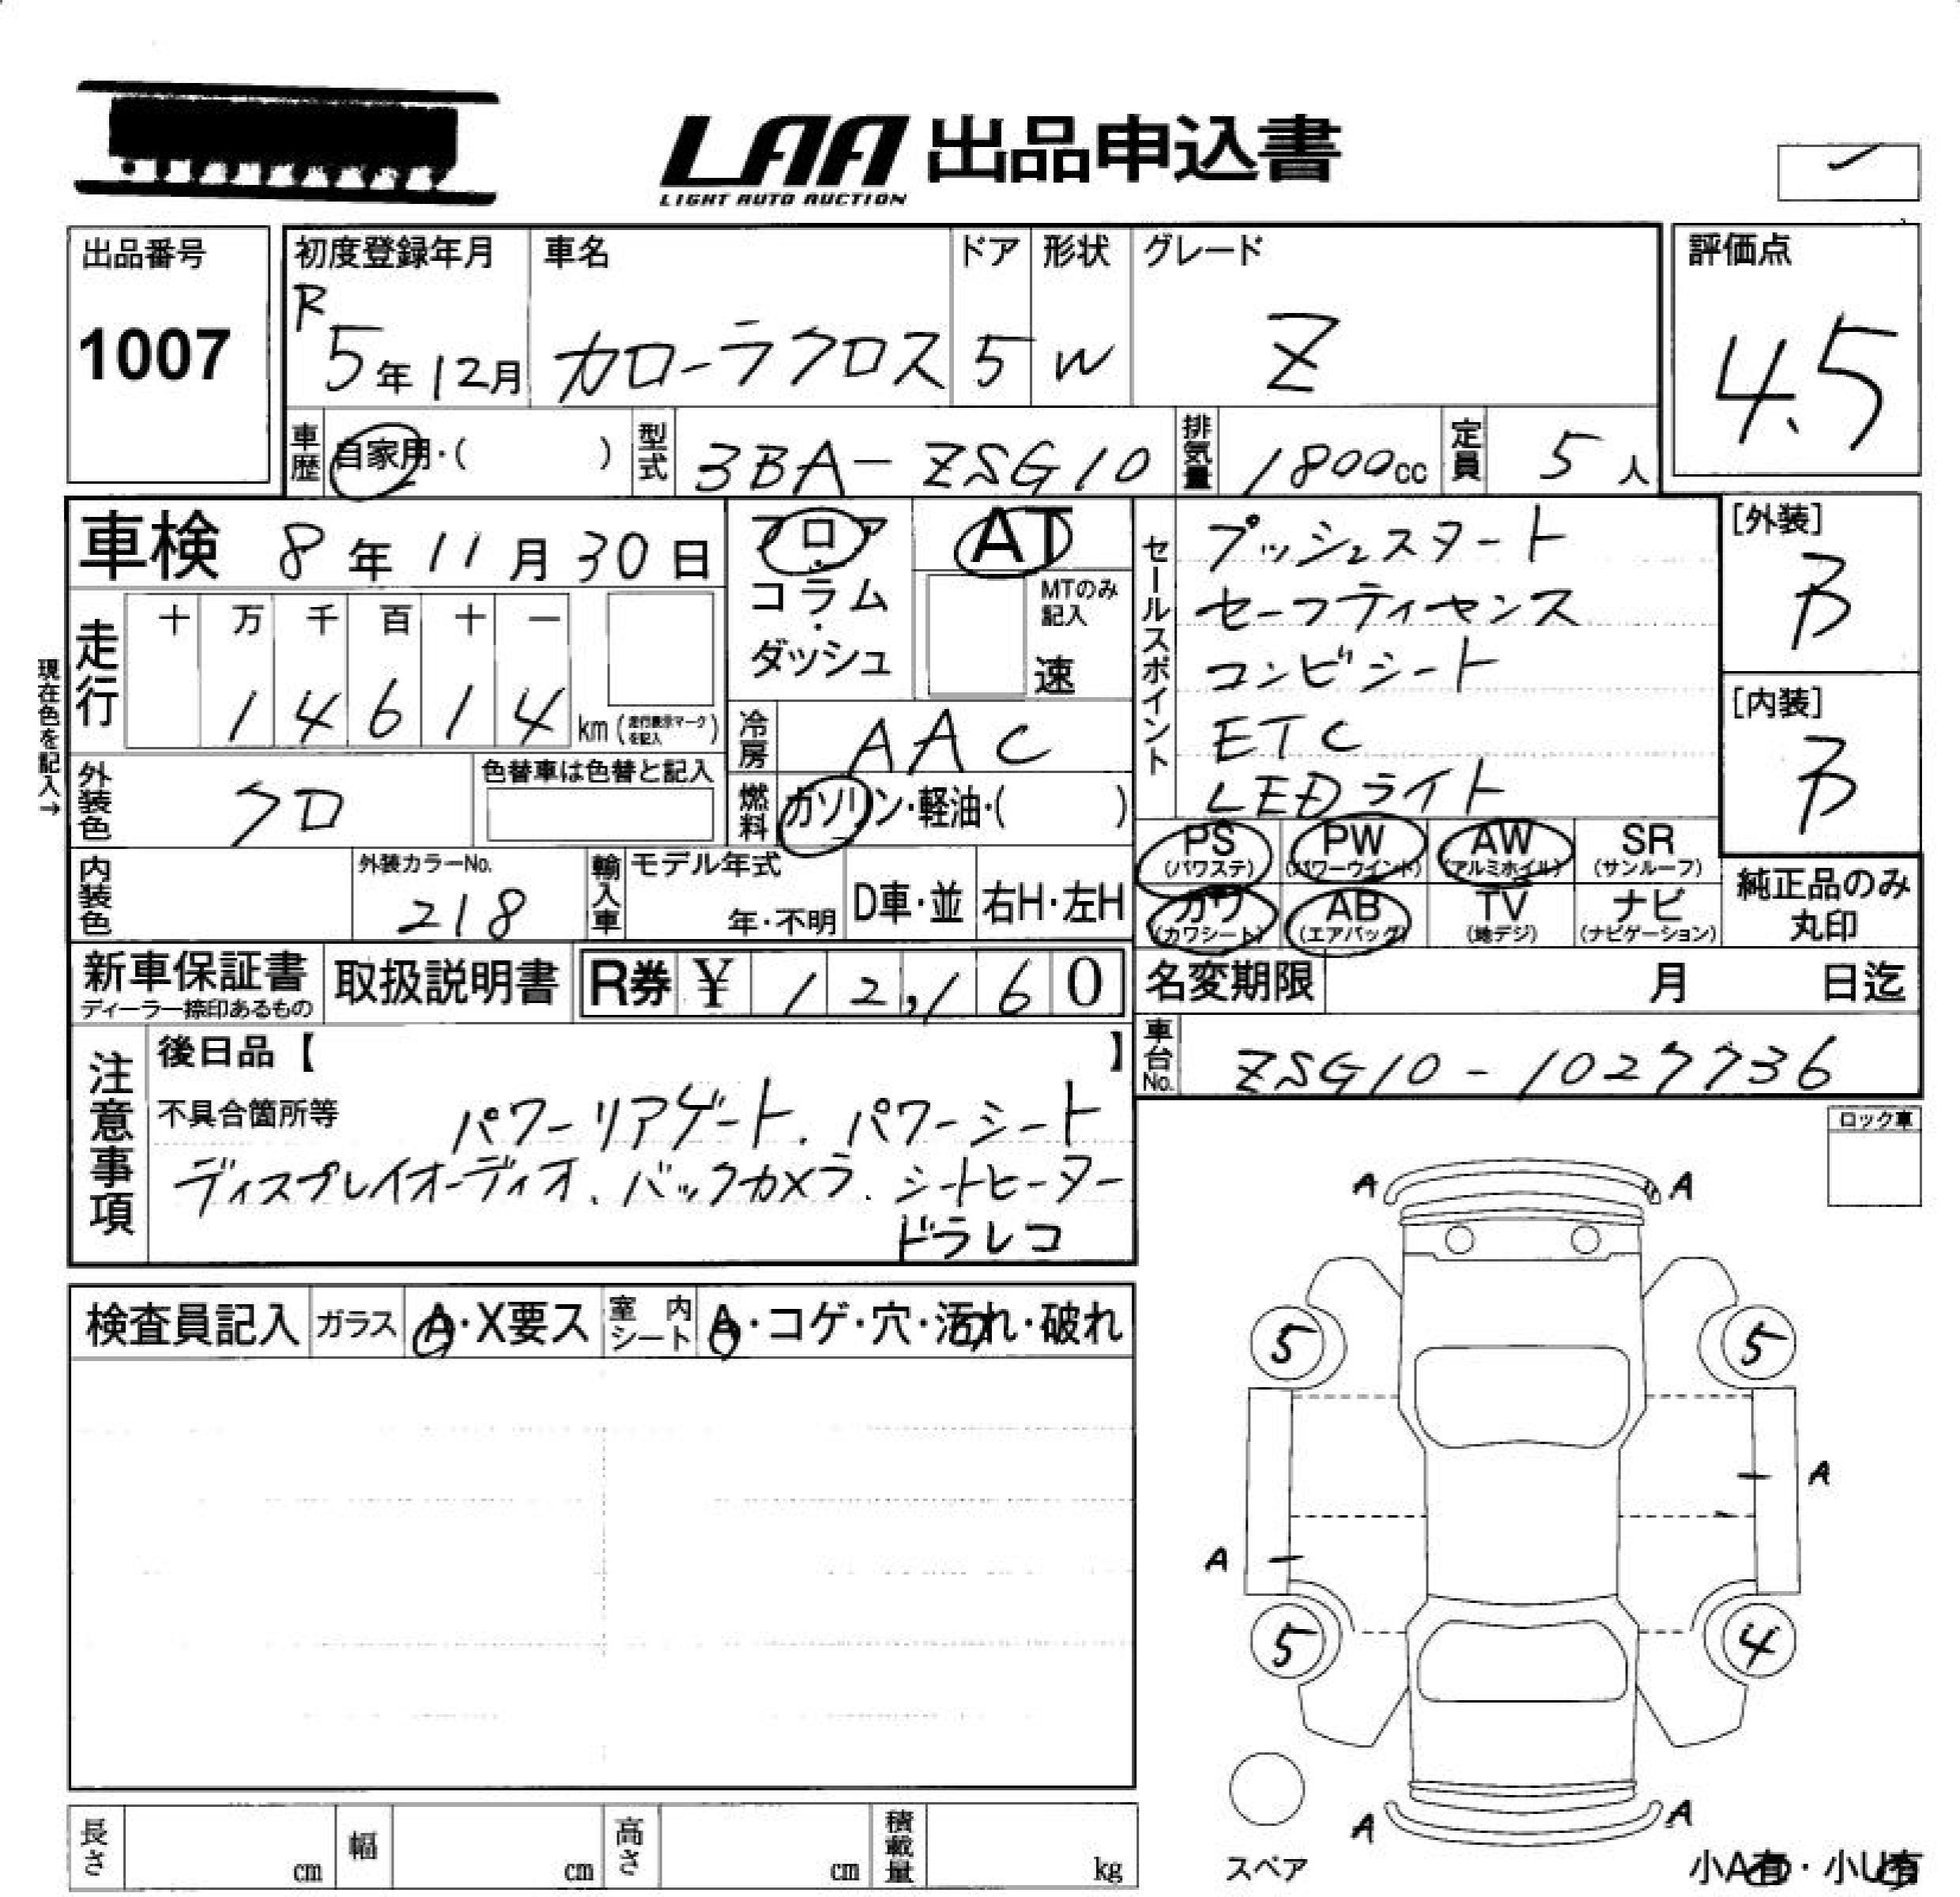 LAA 出品申込書
LIGHT AUTO AUCTION
出品番号
1007
初度登録年月
R
5年12月
車名
カローラクロス
ドア
5
形状
W
グレード
Z
評価点
4.5
車歴
自家用・( )
型式
3BA-ZSG10
排気量
1800cc
定員
5人
車検 8年11月30日
フロア
・
コラム
・
ダッシュ
AT
MTのみ
記入
速
セールスポイント
プッシュスタート
セーフティセンス
コンビシート
ETC
LEDライト
[外装]
B
[内装]
B
現在色を記入→
走行
十 万 千 百 十 一
1 4 6 1 4 km (走行表示マークを記入)
冷房
AAC
外装色
クロ
色替車は色替と記入
燃料
ガソリン・軽油・( )
PS
(パワステ)
PW
(パワーウインド)
AW
(アルミホイル)
SR
(サンルーフ)
カワ
(カワシート)
AB
(エアバッグ)
TV
(地デジ)
ナビ
(ナビゲーション)
純正品のみ
丸印
内装色
外装カラーNo.
218
輸入車
モデル年式
年・不明
D車・並
右H・左H
新車保証書
ディーラー捺印あるもの
取扱説明書
R券 ¥ 12,160
名変期限 月 日迄
車台No.
ZSG10-1027736
注意事項
後日品【 】
不具合箇所等
パワーリアゲート、パワーシート
ディスプレイオーディオ、バックカメラ、シートヒーター
ドラレコ
ロック車
検査員記入
ガラス
A・X要ス
室内シート
A・コゲ・穴・汚れ・破れ
A A
5 5
A
A
5 4
A A
スペア
小A有・小U有
長さ cm
幅 cm
高さ cm
積載量 kg